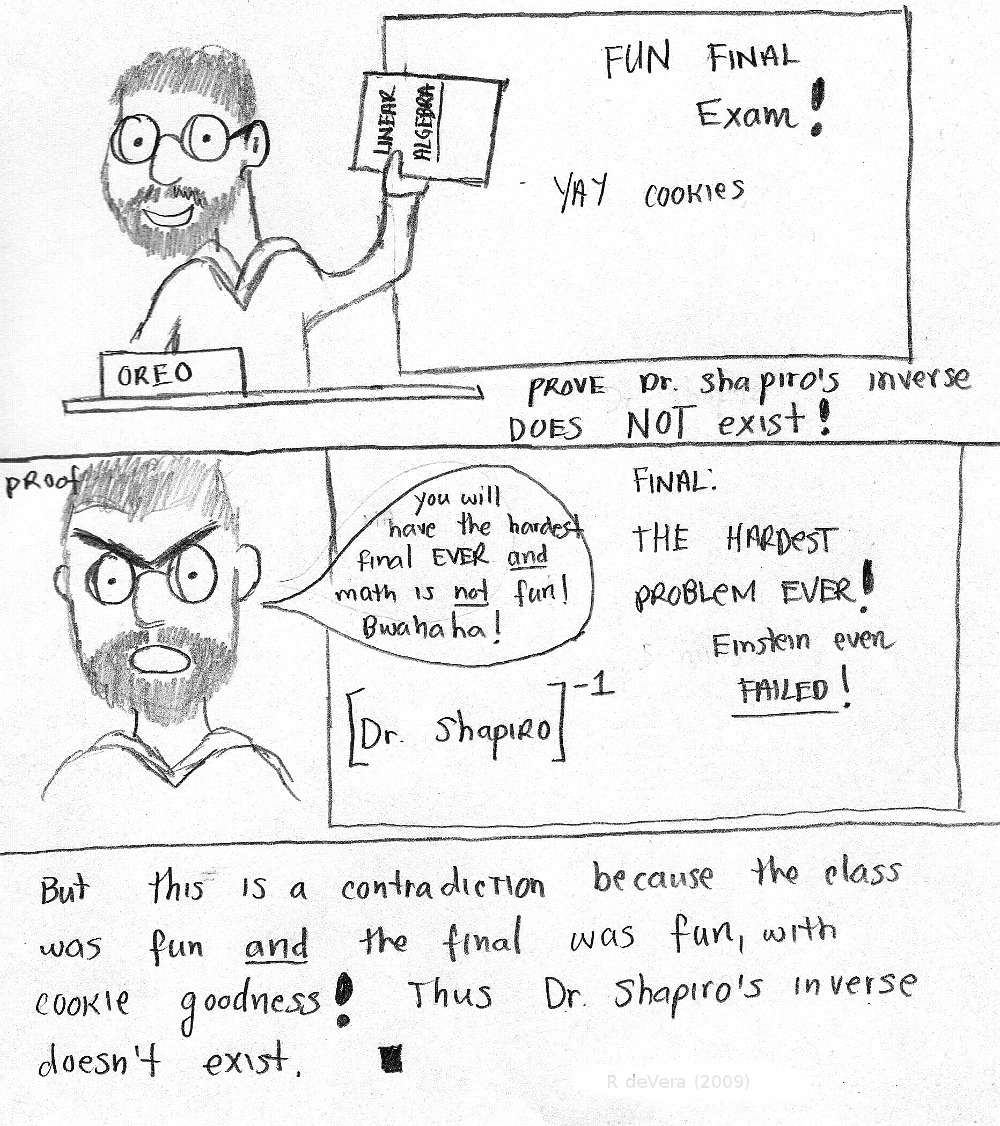 FUN FINAL
Exam!
LINEAR
ALGEBRA
YAY COOKIES
OREO
PROVE Dr. Shapiro's inverse
DOES NOT exist!
PROOF
you will
have the hardest
final EVER and
math is not fun!
Bwahaha!
[Dr. Shapiro]-1
FINAL:
THE HARDEST
PROBLEM EVER!
Einstein even
FAILED!
But this is a contradiction because the class
was fun and the final was fun, with
cookie goodness! Thus Dr. Shapiro's inverse
doesn't exist. ■
R deVera (2009)